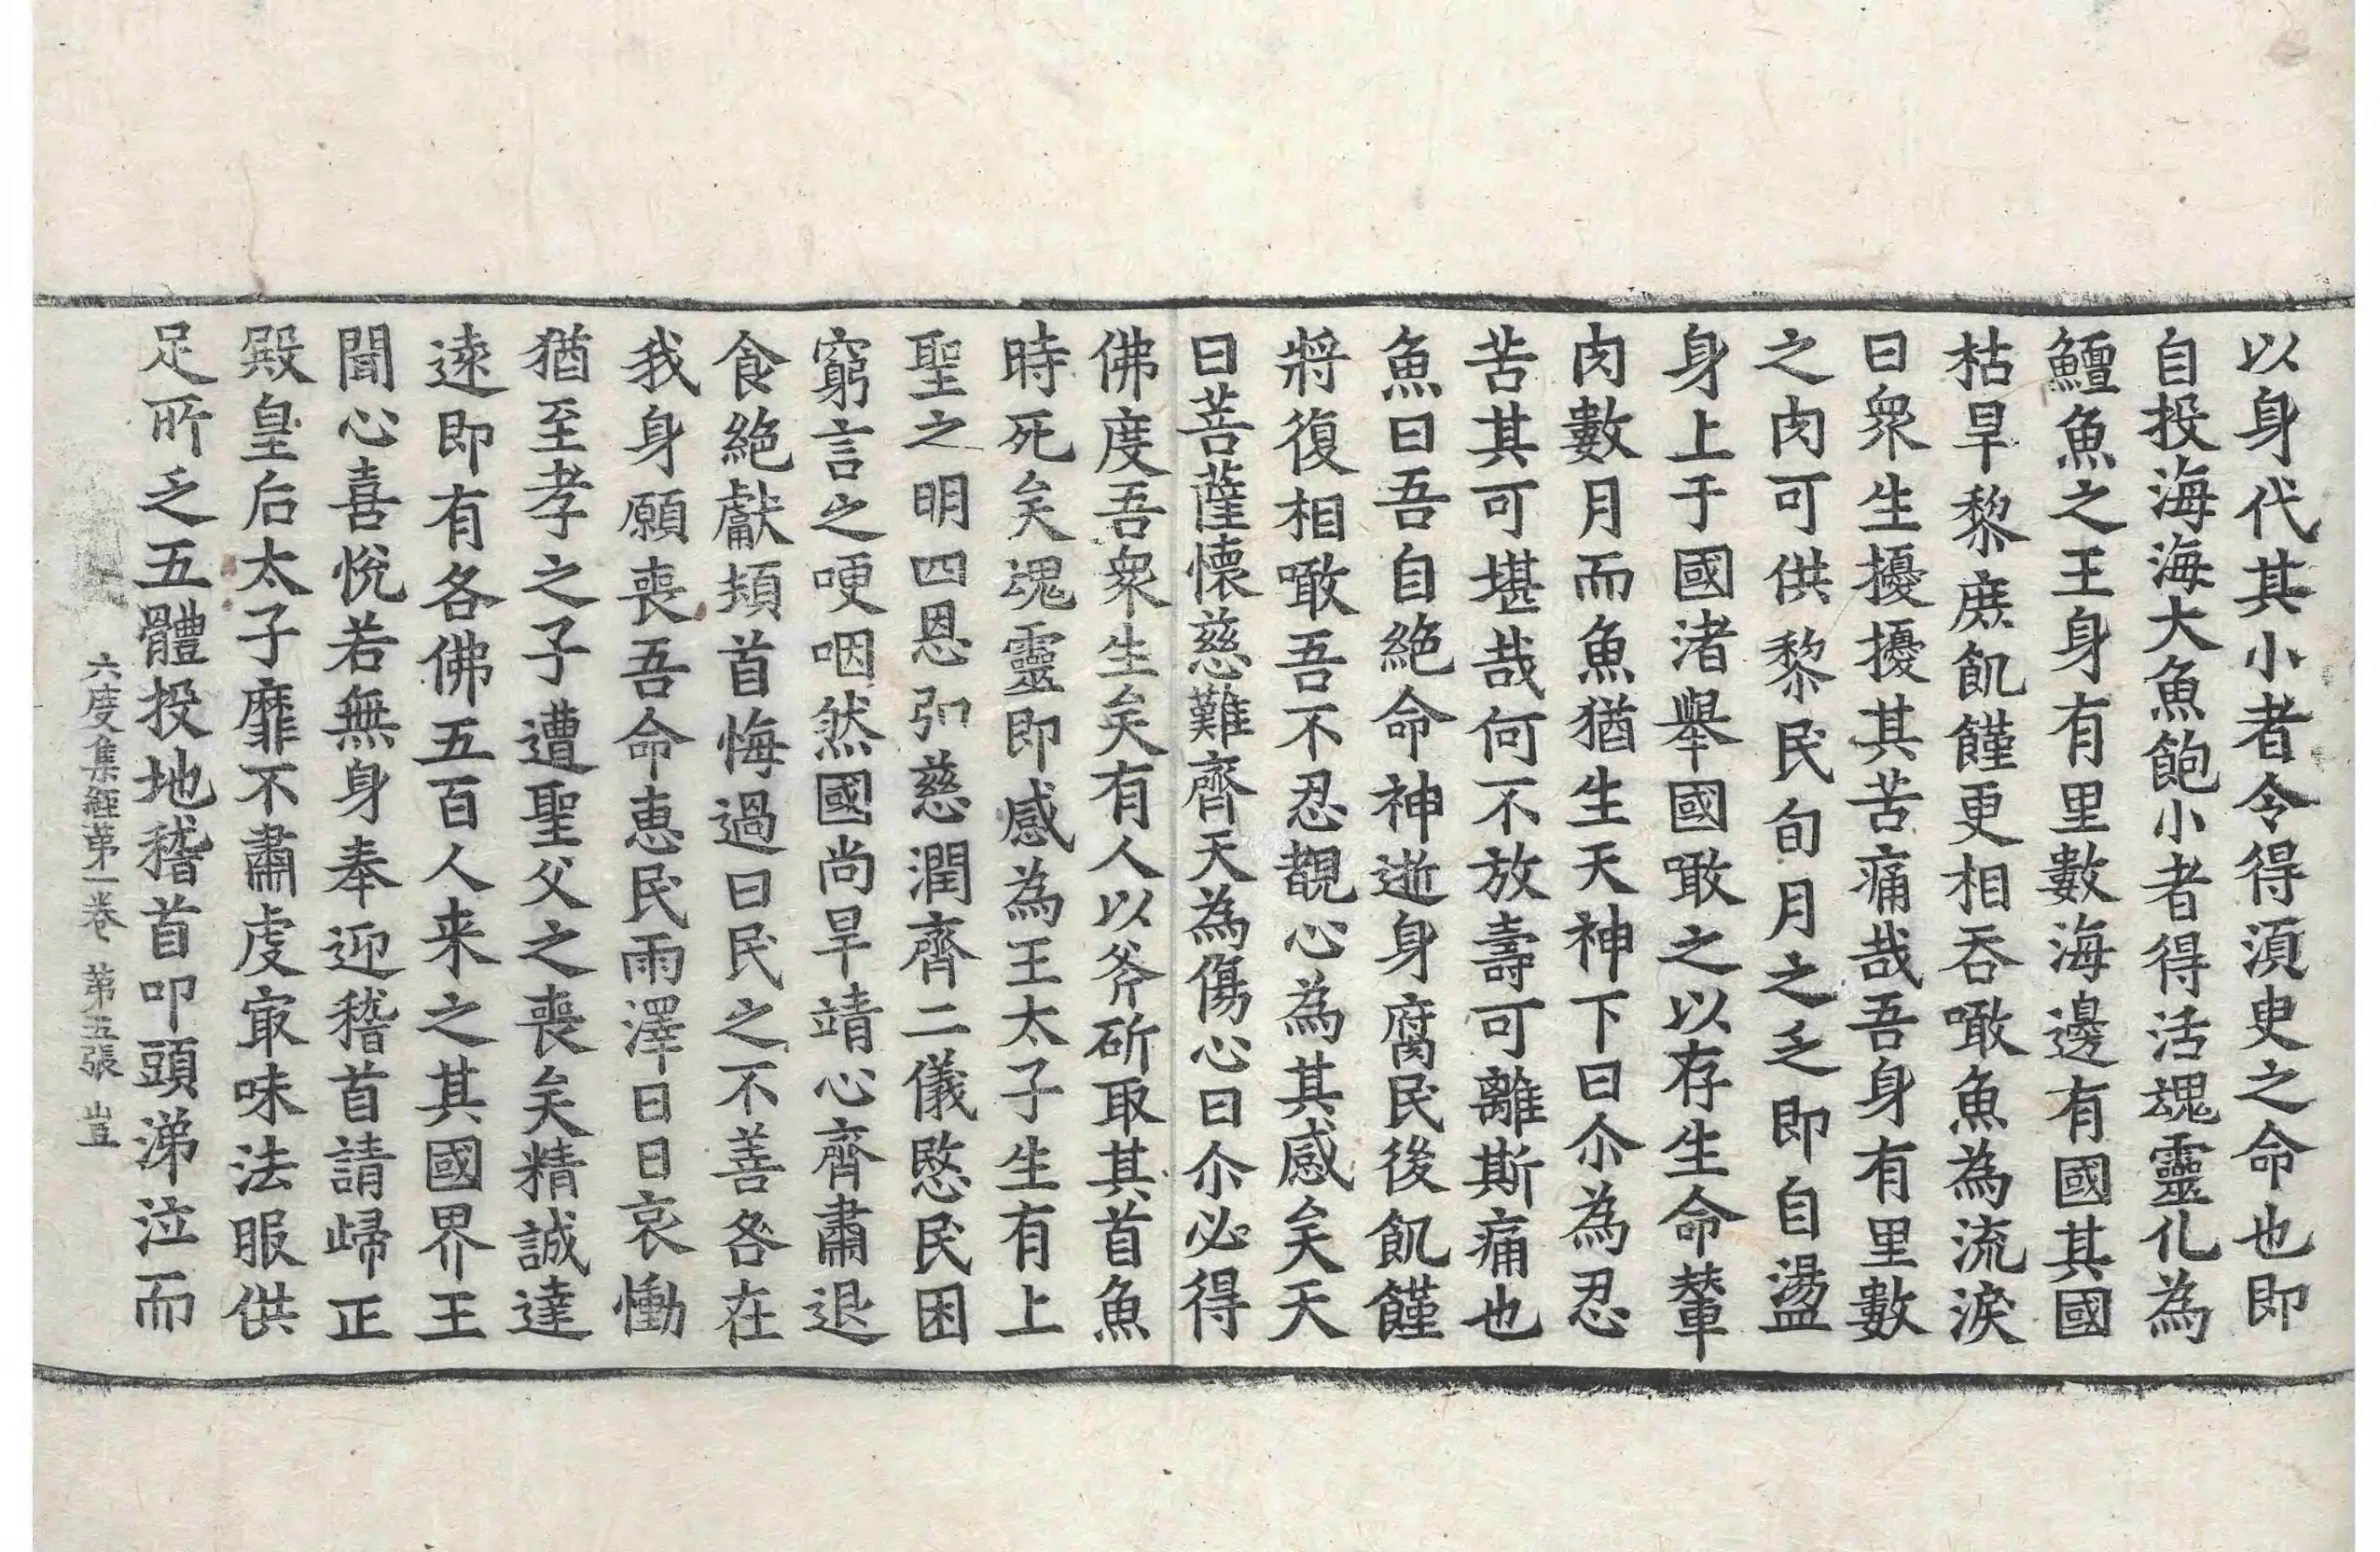 以身代其小者令得湏臾之命也即
自投海海大魚飽小者得活魂靈化為
鱣魚之王身有里數海邊有國其國
枯旱黎庶飢饉更相吞噉魚為流淚
曰衆生擾擾其苦痛哉吾身有里數
之肉可供黎民旬月之乏即自盪
身上于國渚舉國噉之以存生命輦
肉數月而魚猶生天神下曰尒為忍
苦其可堪哉何不放壽可離斯痛也
魚曰吾自絶命神逝身腐民後飢饉
將復相噉吾不忍覩心為其感矣天
曰菩薩懷慈難齊天為傷心曰尒必得
佛度吾衆生矣有人以斧斫取其首魚
時死矣魂靈即感為王太子生有上
聖之明四恩弘慈潤齊二儀愍民困
窮言之哽咽然國尚旱靖心齊肅退
食絶獻頓首悔過曰民之不善咎在
我身願喪吾命惠民雨澤日日哀慟
猶至孝之子遭聖父之喪矣精誠達
遠即有各佛五百人来之其國界王
聞心喜悅若無身奉迎稽首請歸正
殿皇后太子靡不肅虔㝡味法服供
足所乏五體投地稽首叩頭涕泣而
六度集經第一卷 第五張 豈